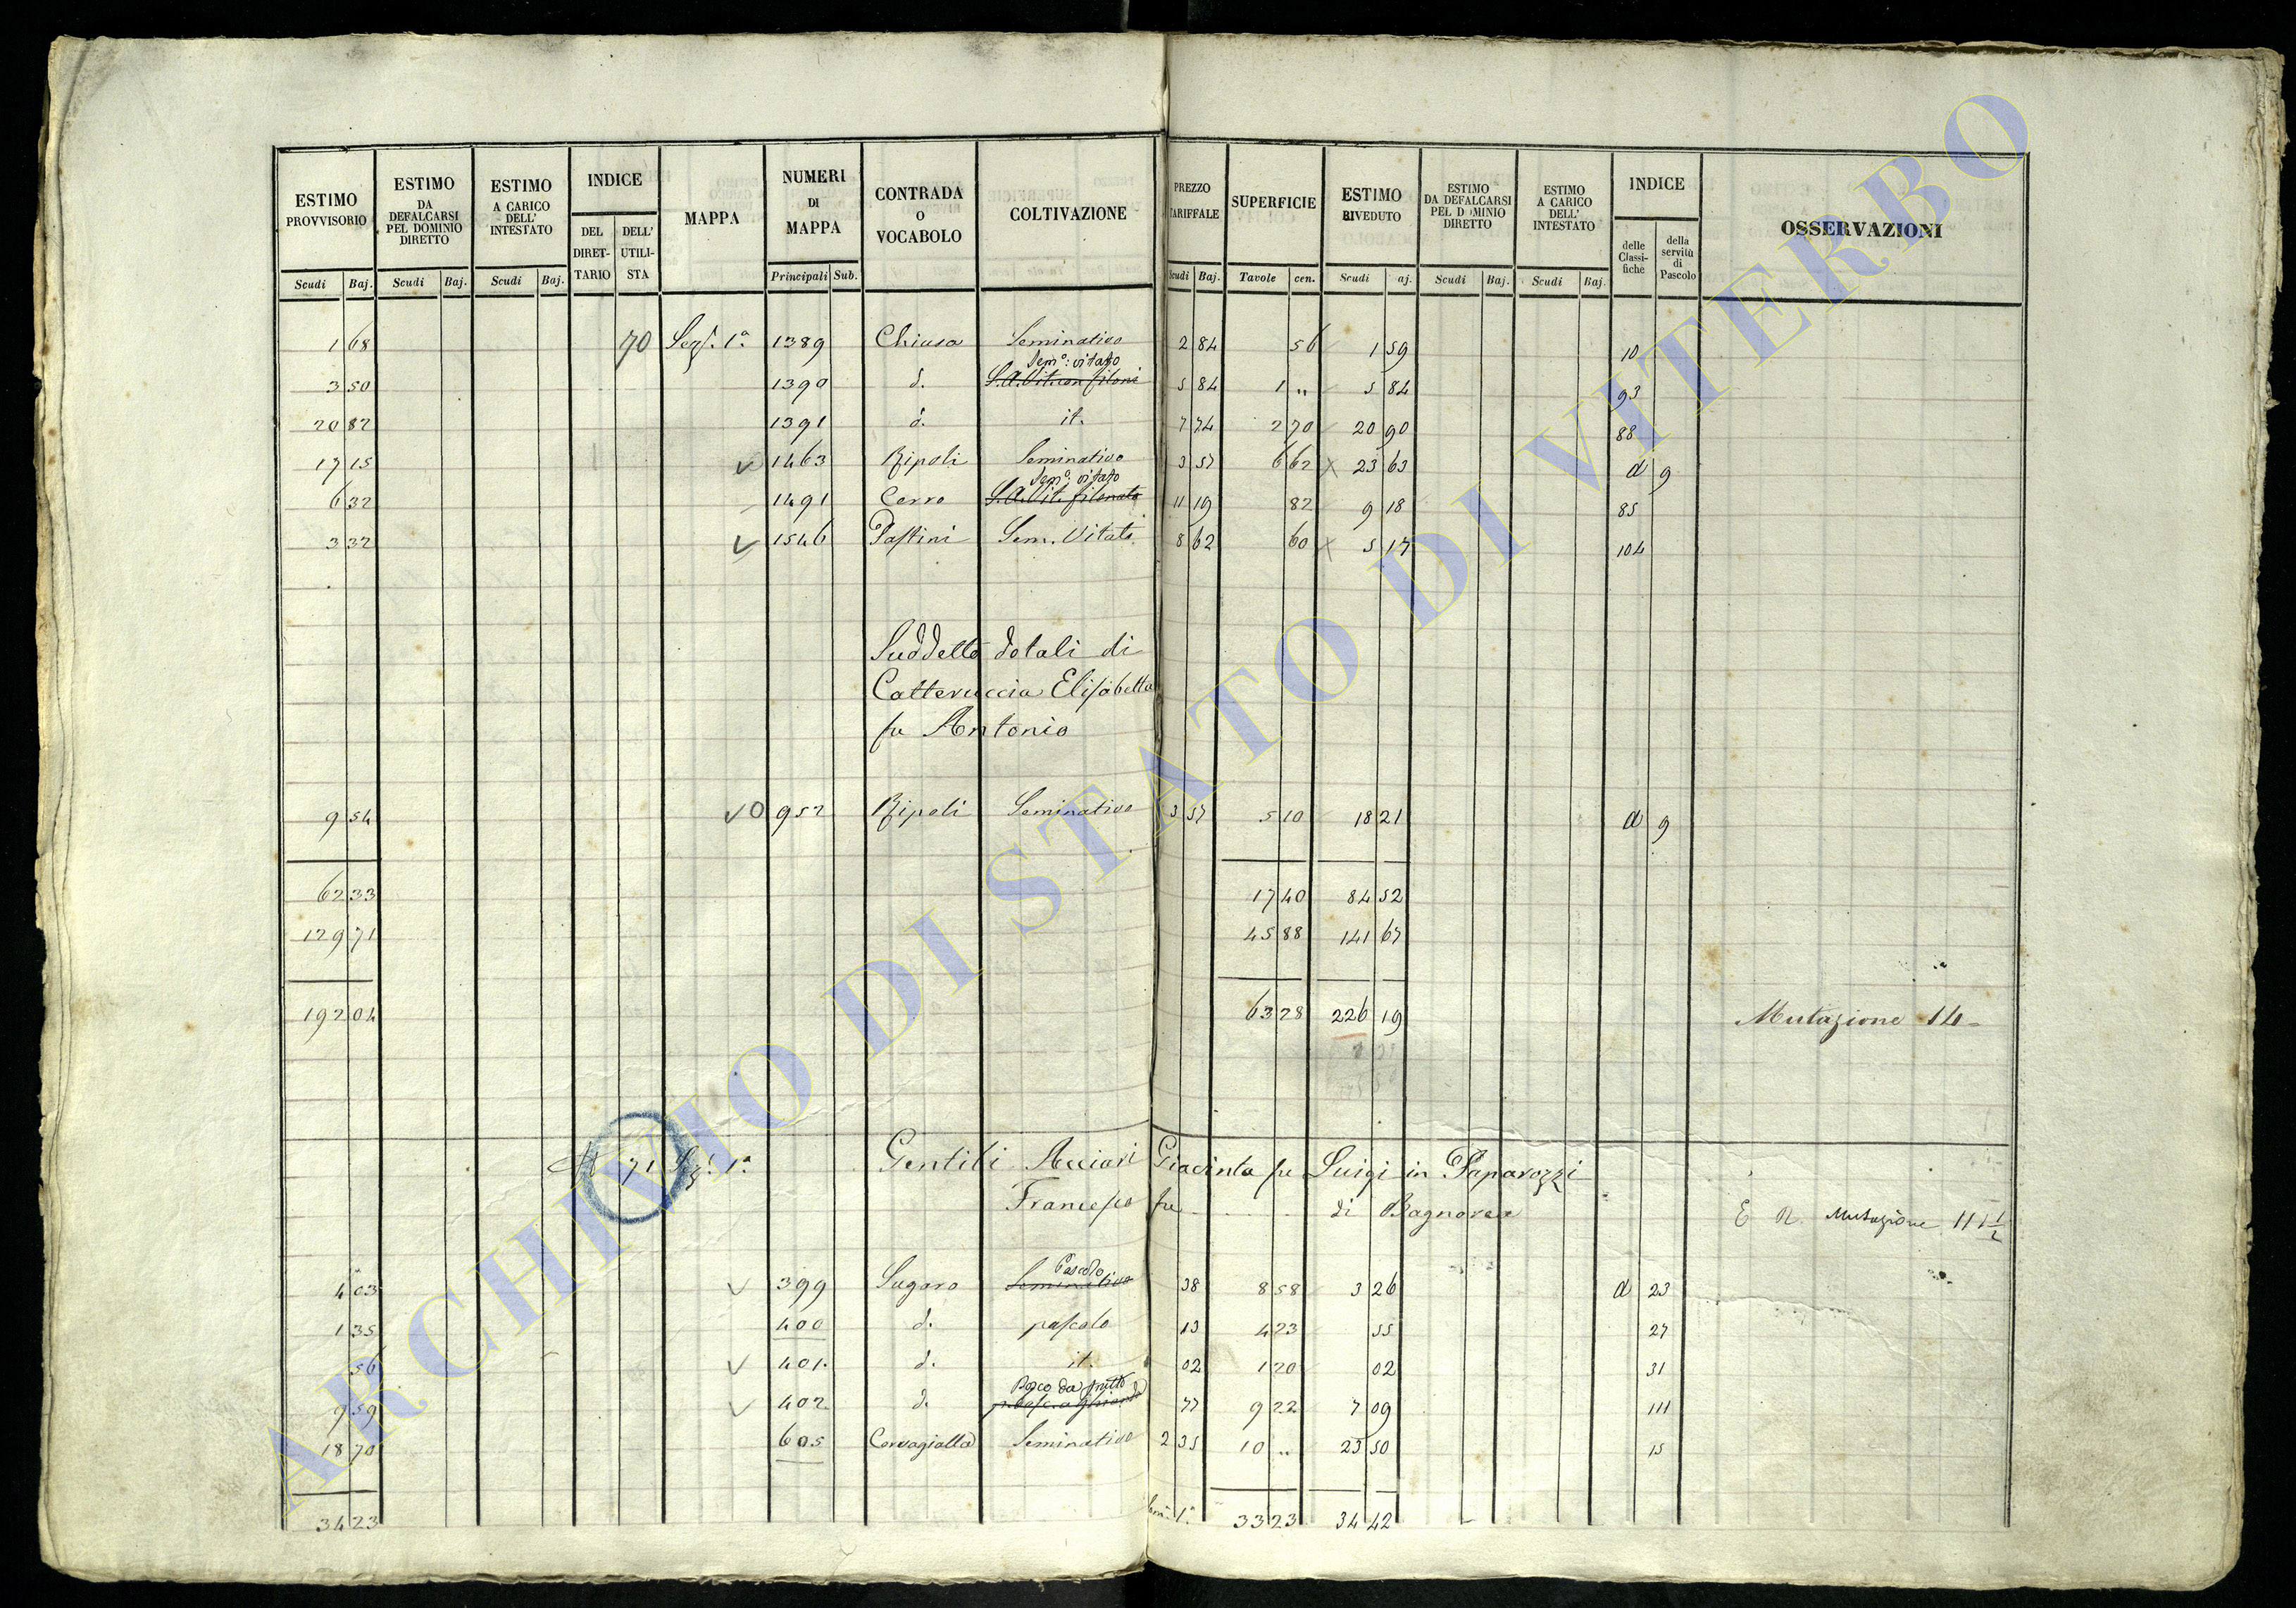 ESTIMO PROVVISORIO | ESTIMO DA DEFALCARSI PEL DOMINIO DIRETTO | ESTIMO A CARICO DELL' INTESTATO | INDICE | MAPPA | NUMERI DI MAPPA | CONTRADA O VOCABOLO | COLTIVAZIONE | PREZZO TARIFFALE | SUPERFICIE | ESTIMO RIVEDUTO | ESTIMO DA DEFALCARSI PEL DOMINIO DIRETTO | ESTIMO A CARICO DELL' INTESTATO | INDICE | OSSERVAZIONI
DEL DIRET-TARIO | DELL' UTILI-STA | delle Classi-fiche | della servitù di Pascolo
Scudi | Baj. | Scudi | Baj. | Scudi | Baj. | Principali | Sub. | Scudi | Baj. | Tavole | cen. | Scudi | aj. | Scudi | Baj. | Scudi | Baj.
1 68 | 70 | Sez. 1ª | 1389 | Chiusa | Seminativo | 2 84 | 56 | 1 59 | 10
Sem.º vitato
3 50 | 1390 | d. | S.A.Vit. con filoni | 5 84 | 1 „ | 5 84 | 93
20 82 | 1391 | d. | it. | 7 74 | 2 70 | 20 90 | 88
17 15 | 1463 | Ripoli | Seminativo | 3 57 | 6 62 | 23 63 | d | 9
Sem.º vitato
6 32 | 1491 | Cerro | S.A.Vit. filonato | 11 19 | 82 | 9 18 | 85
3 32 | 1546 | Pastini | Sem. Vitato | 8 62 | 60 | 5 17 | 104
Suddetto dotali di
Catteruccia Elisabetta
fu Antonio
9 54 | 952 | Ripoli | Seminativo | 3 57 | 5 10 | 18 21 | d | 9
62 33 | 17 40 | 84 52
129 71 | 45 88 | 141 67
192 04 | 63 28 | 226 19 | Mutazione 14
71 Sez. 1ª | Gentili Acciari Giacinta fu Luigi in Paparozzi
Francesco fu . . . . . di Bagnorea | Mutazione 11 1/2
4 03 | 399 | Sugaro | Pascolo Seminativo | 38 | 8 58 | 3 26 | d | 23
1 35 | 400 | d. | pascolo | 13 | 4 23 | 55 | 27
56 | 401 | d. | it. | 02 | 1 20 | 02 | 31
Bosco da frutto
9 59 | 402 | d. | 77 | 9 22 | 7 09 | 111
18 70 | 605 | Corvagialla | Seminativo | 2 35 | 10 „ | 23 50 | 15
34 23 | 33 23 | 34 42
ARCHIVIO DI STATO DI VITERBO